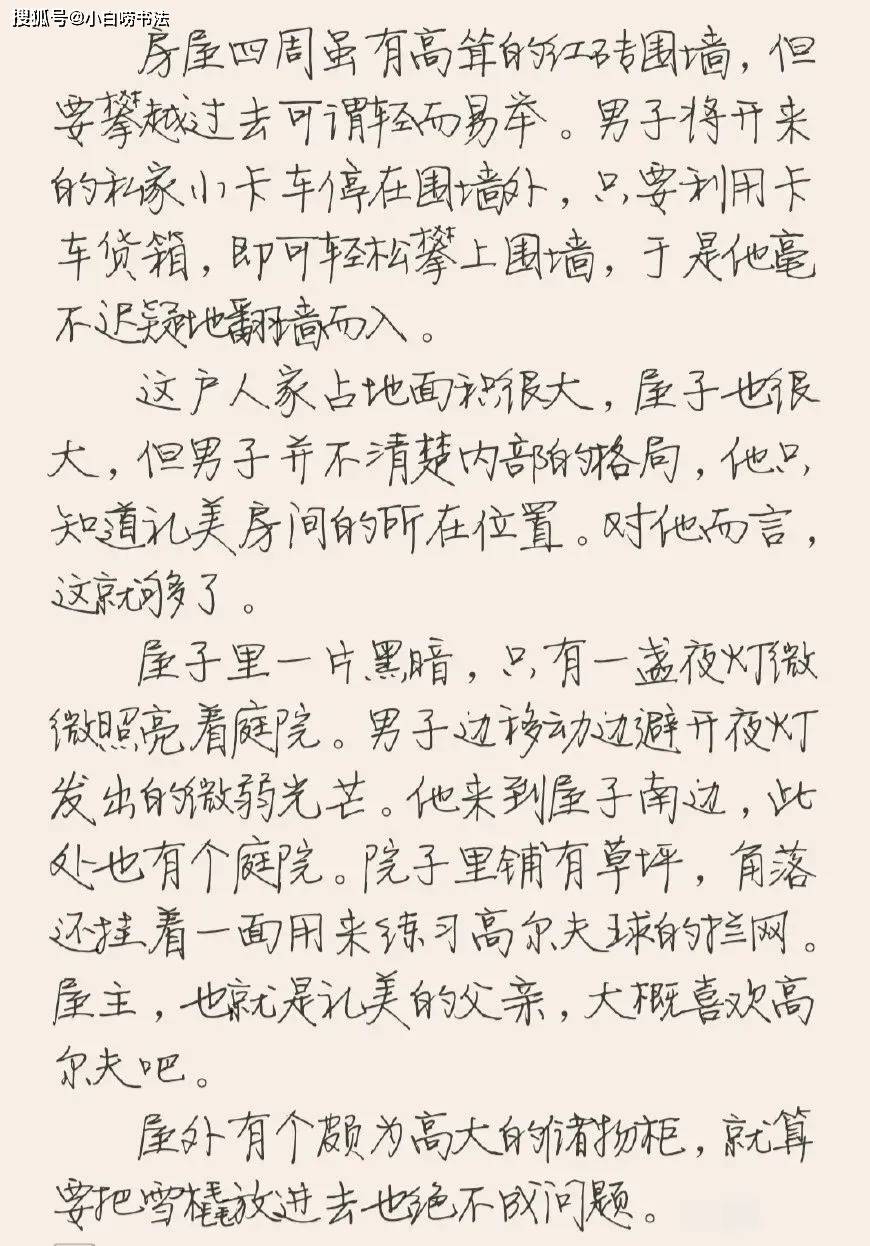 搜狐号@小白唠书法
房屋四周虽有高耸的红砖围墙，但
要攀越过去可谓轻而易举。男子将开来
的私家小卡车停在围墙外，只要利用卡
车货箱，即可轻松攀上围墙，于是他毫
不迟疑地翻墙而入。
这户人家占地面积很大，屋子也很
大，但男子并不清楚内部的格局，他只
知道礼美房间的所在位置。对他而言，
这就够了。
屋子里一片黑暗，只有一盏夜灯微
微照亮着庭院。男子边移动边避开夜灯
发出的微弱光芒。他来到屋子南边，此
处也有个庭院。院子里铺有草坪，角落
还挂着一面用来练习高尔夫球的拦网。
屋主，也就是礼美的父亲，大概喜欢高
尔夫吧。
屋外有个颇为高大的储物柜，就算
要把雪橇放进去也绝不成问题。